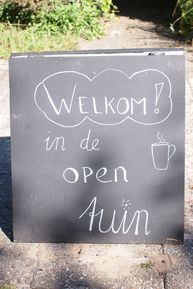 WELKOM!
in de
OPEN
tuin